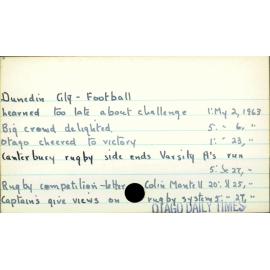 Dunedin City - Football
Learned too late about challenge 1: My 2, 1963
Big crowd delighted 5: " 6, "
Otago cheered to victory 1: " 23, "
Canterbury rugby side ends Varsity A's run
5: Je 27, "
Rugby competition - letter Colin Mantell 20: Jl 25, "
Captains give views on rugby system 5: " 27, "
OTAGO DAILY TIMES